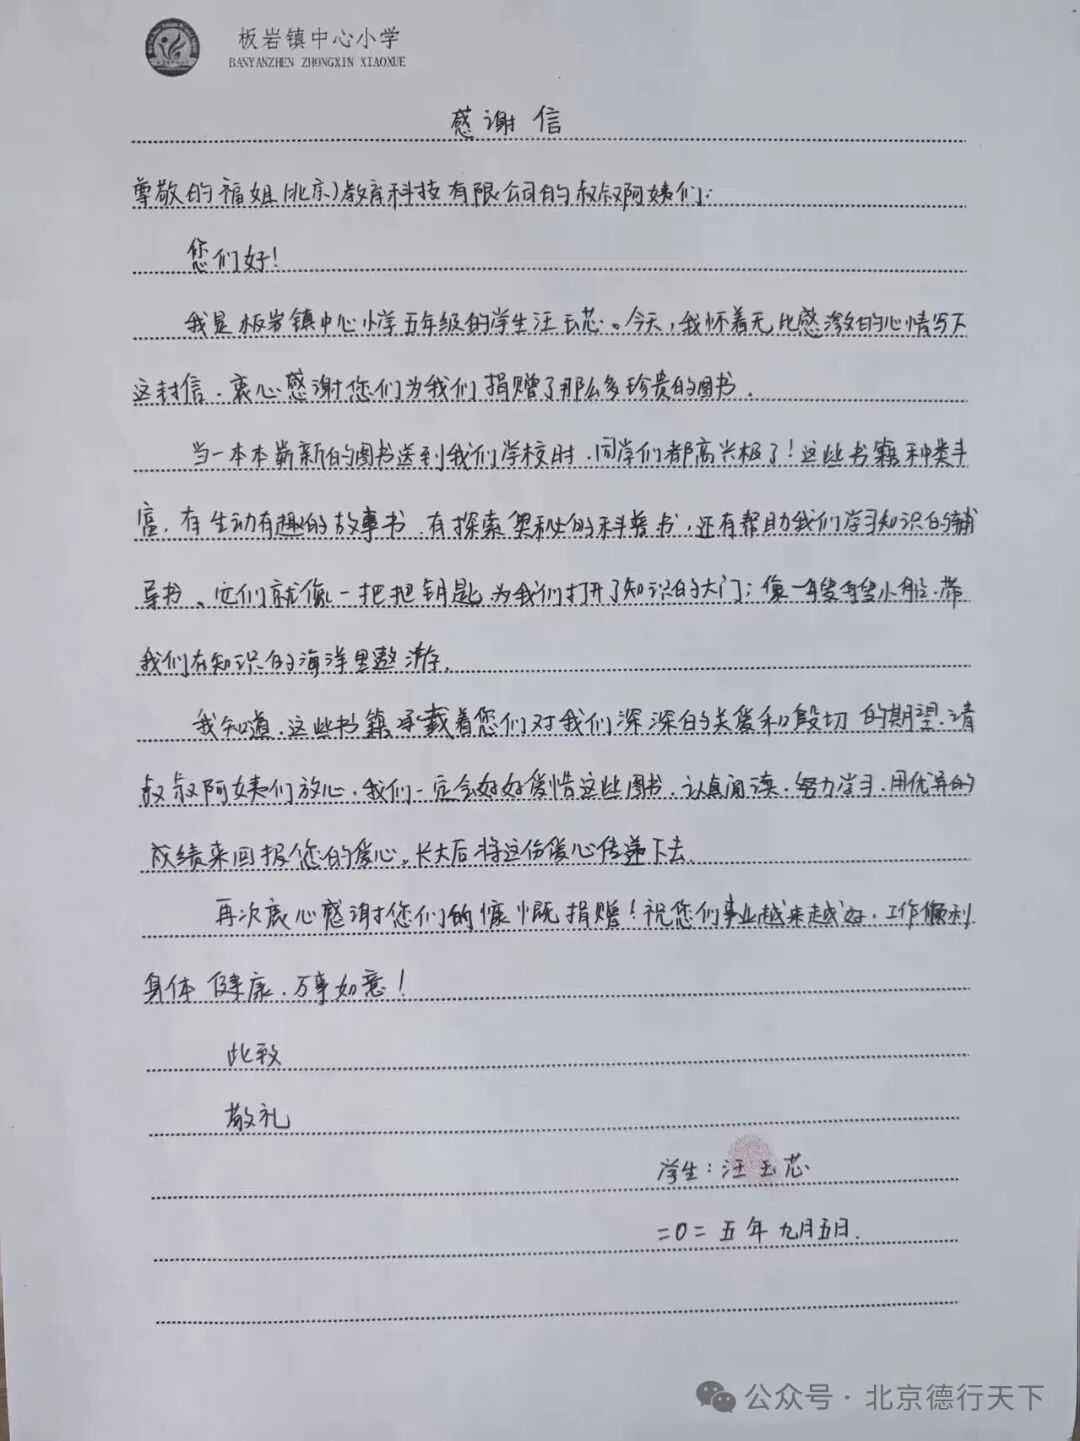 板岩镇中心小学
BANYANZHEN ZHONGXIN XIAOXUE
感谢信
尊敬的福姐(北京)教育科技有限公司的叔叔阿姨们:
您们好!
我是板岩镇中心小学五年级的学生汪玉芯。今天,我怀着无比感激的心情写下
这封信,衷心感谢您们为我们捐赠了那么多珍贵的图书。
当一本本崭新的图书送到我们学校时,同学们都高兴极了!这些书籍种类丰
富,有生动有趣的故事书,有探索奥秘的科普书,还有帮助我们学习知识的辅
导书、它们就像一把把钥匙,为我们打开了知识的大门;像一艘艘小船,带
我们在知识的海洋里遨游。
我知道,这些书籍承载着您们对我们深深的关爱和殷切的期望,请
叔叔阿姨们放心,我们一定会好好爱惜这些图书,认真阅读,努力学习,用优异的
成绩来回报您的爱心。长大后将这份爱心传递下去。
再次衷心感谢您们的慷慨捐赠!祝您们事业越来越好,工作顺利,
身体健康,万事如意!
此致
敬礼
学生:汪玉芯
二0二五年九月五日.
公众号·北京德行天下